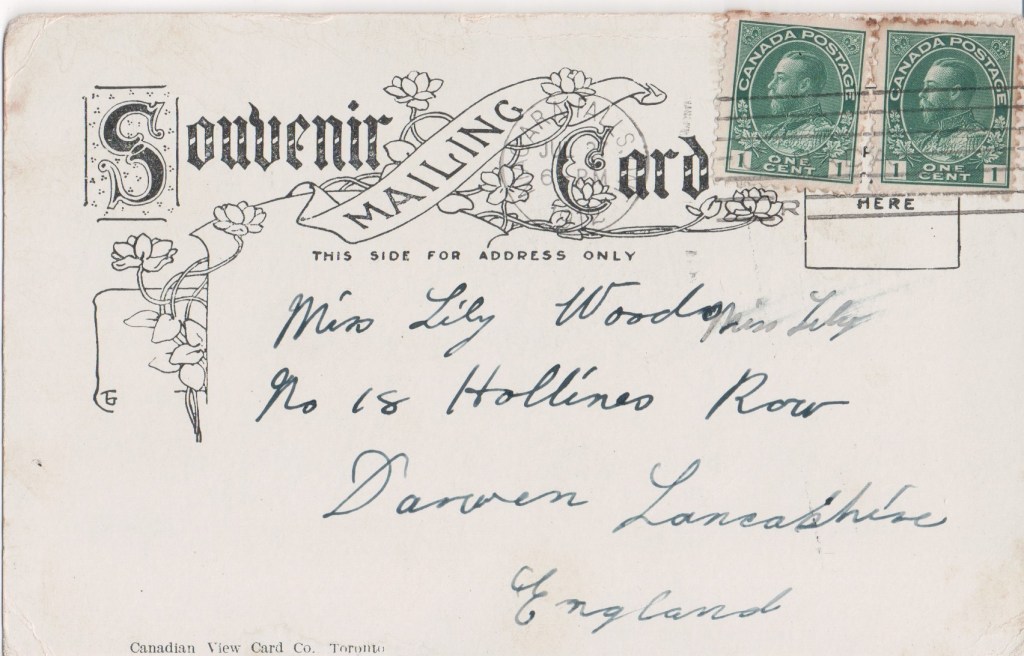 CANADA POSTAGE CANADA POSTAGE
1 ONE CENT 1 1 ONE CENT 1
Souvenir MAILING Card
HERE
THIS SIDE FOR ADDRESS ONLY
Miss Lily Woods Miss Lily
No 18 Hollines Row
Darwen Lancashire
England
Canadian View Card Co. Toronto